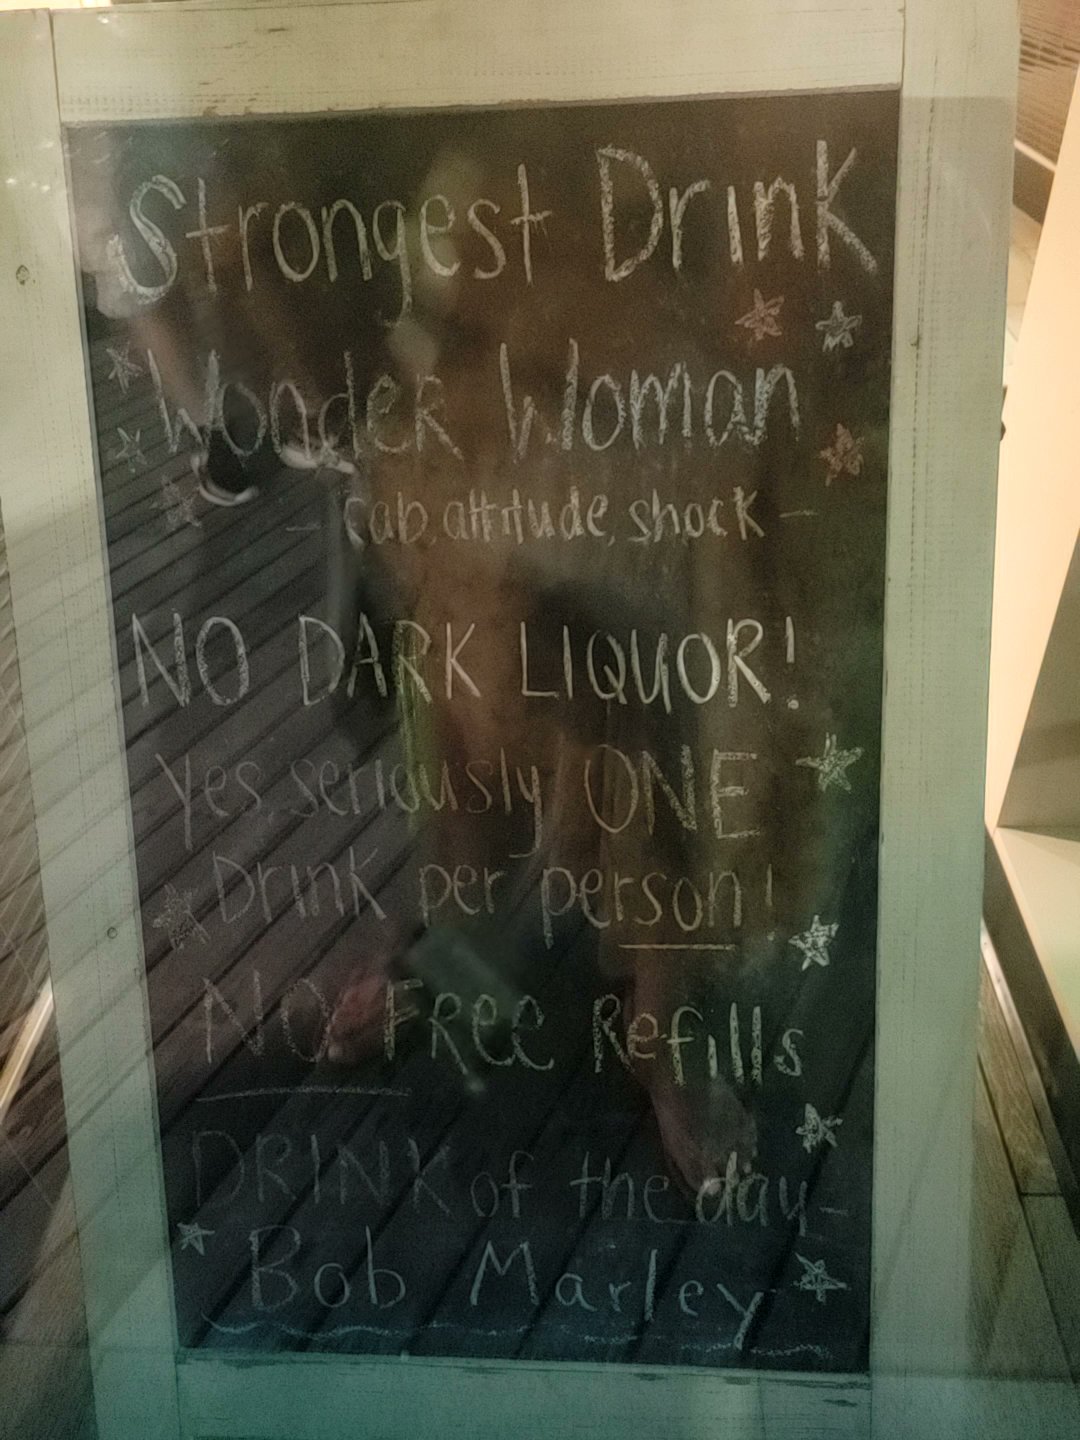 Strongest Drink
Wonder Woman
- cab, attitude, shock -
NO DARK LIQUOR!
Yes, seriously ONE
Drink per person!
NO FRee Refills
DRINK of the day -
Bob Marley